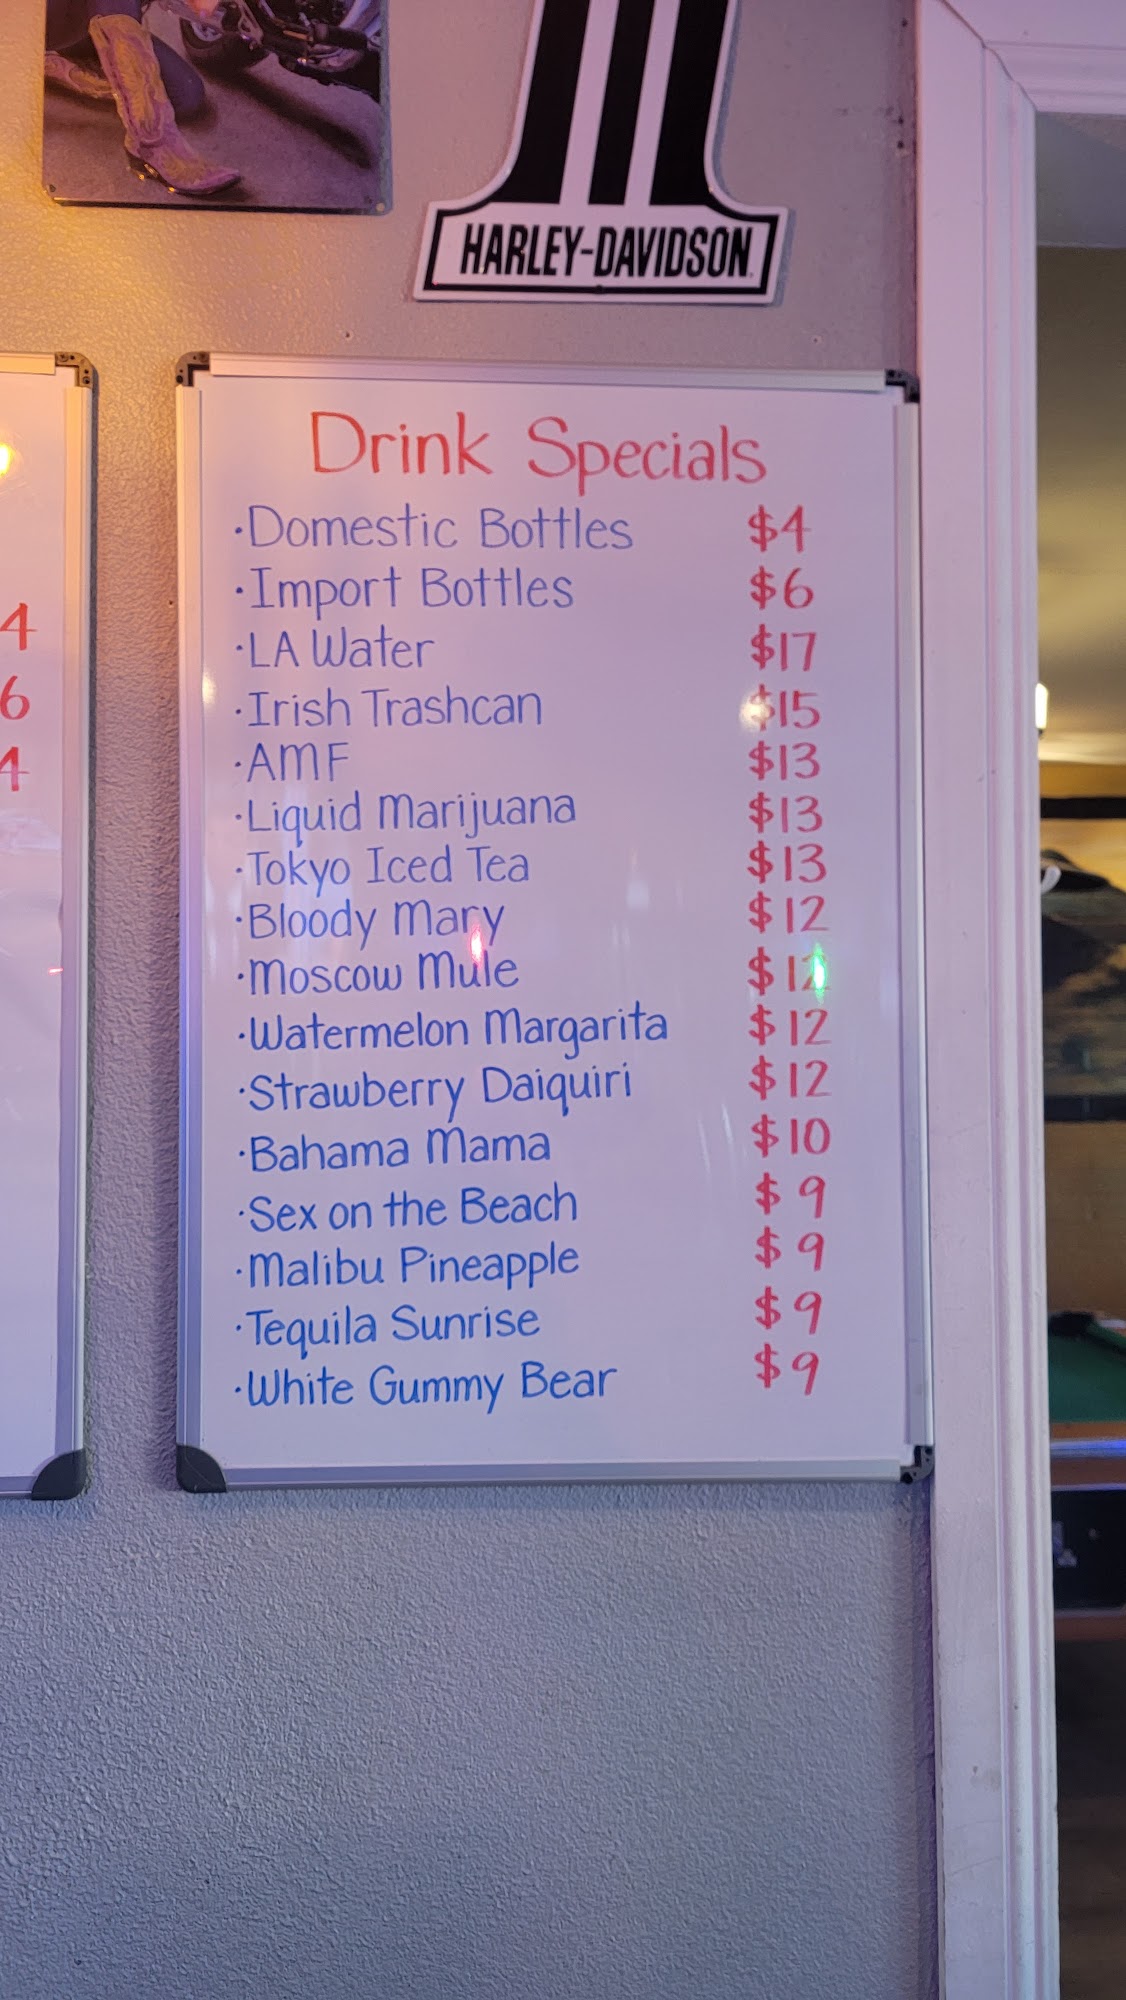 HARLEY-DAVIDSON
4
6
4
Drink Specials
·Domestic Bottles $4
·Import Bottles $6
·LA Water $17
·Irish Trashcan $15
·AMF $13
·Liquid Marijuana $13
·Tokyo Iced Tea $13
·Bloody Mary $12
·Moscow Mule $12
·Watermelon Margarita $12
·Strawberry Daiquiri $12
·Bahama Mama $10
·Sex on the Beach $9
·Malibu Pineapple $9
·Tequila Sunrise $9
·White Gummy Bear $9